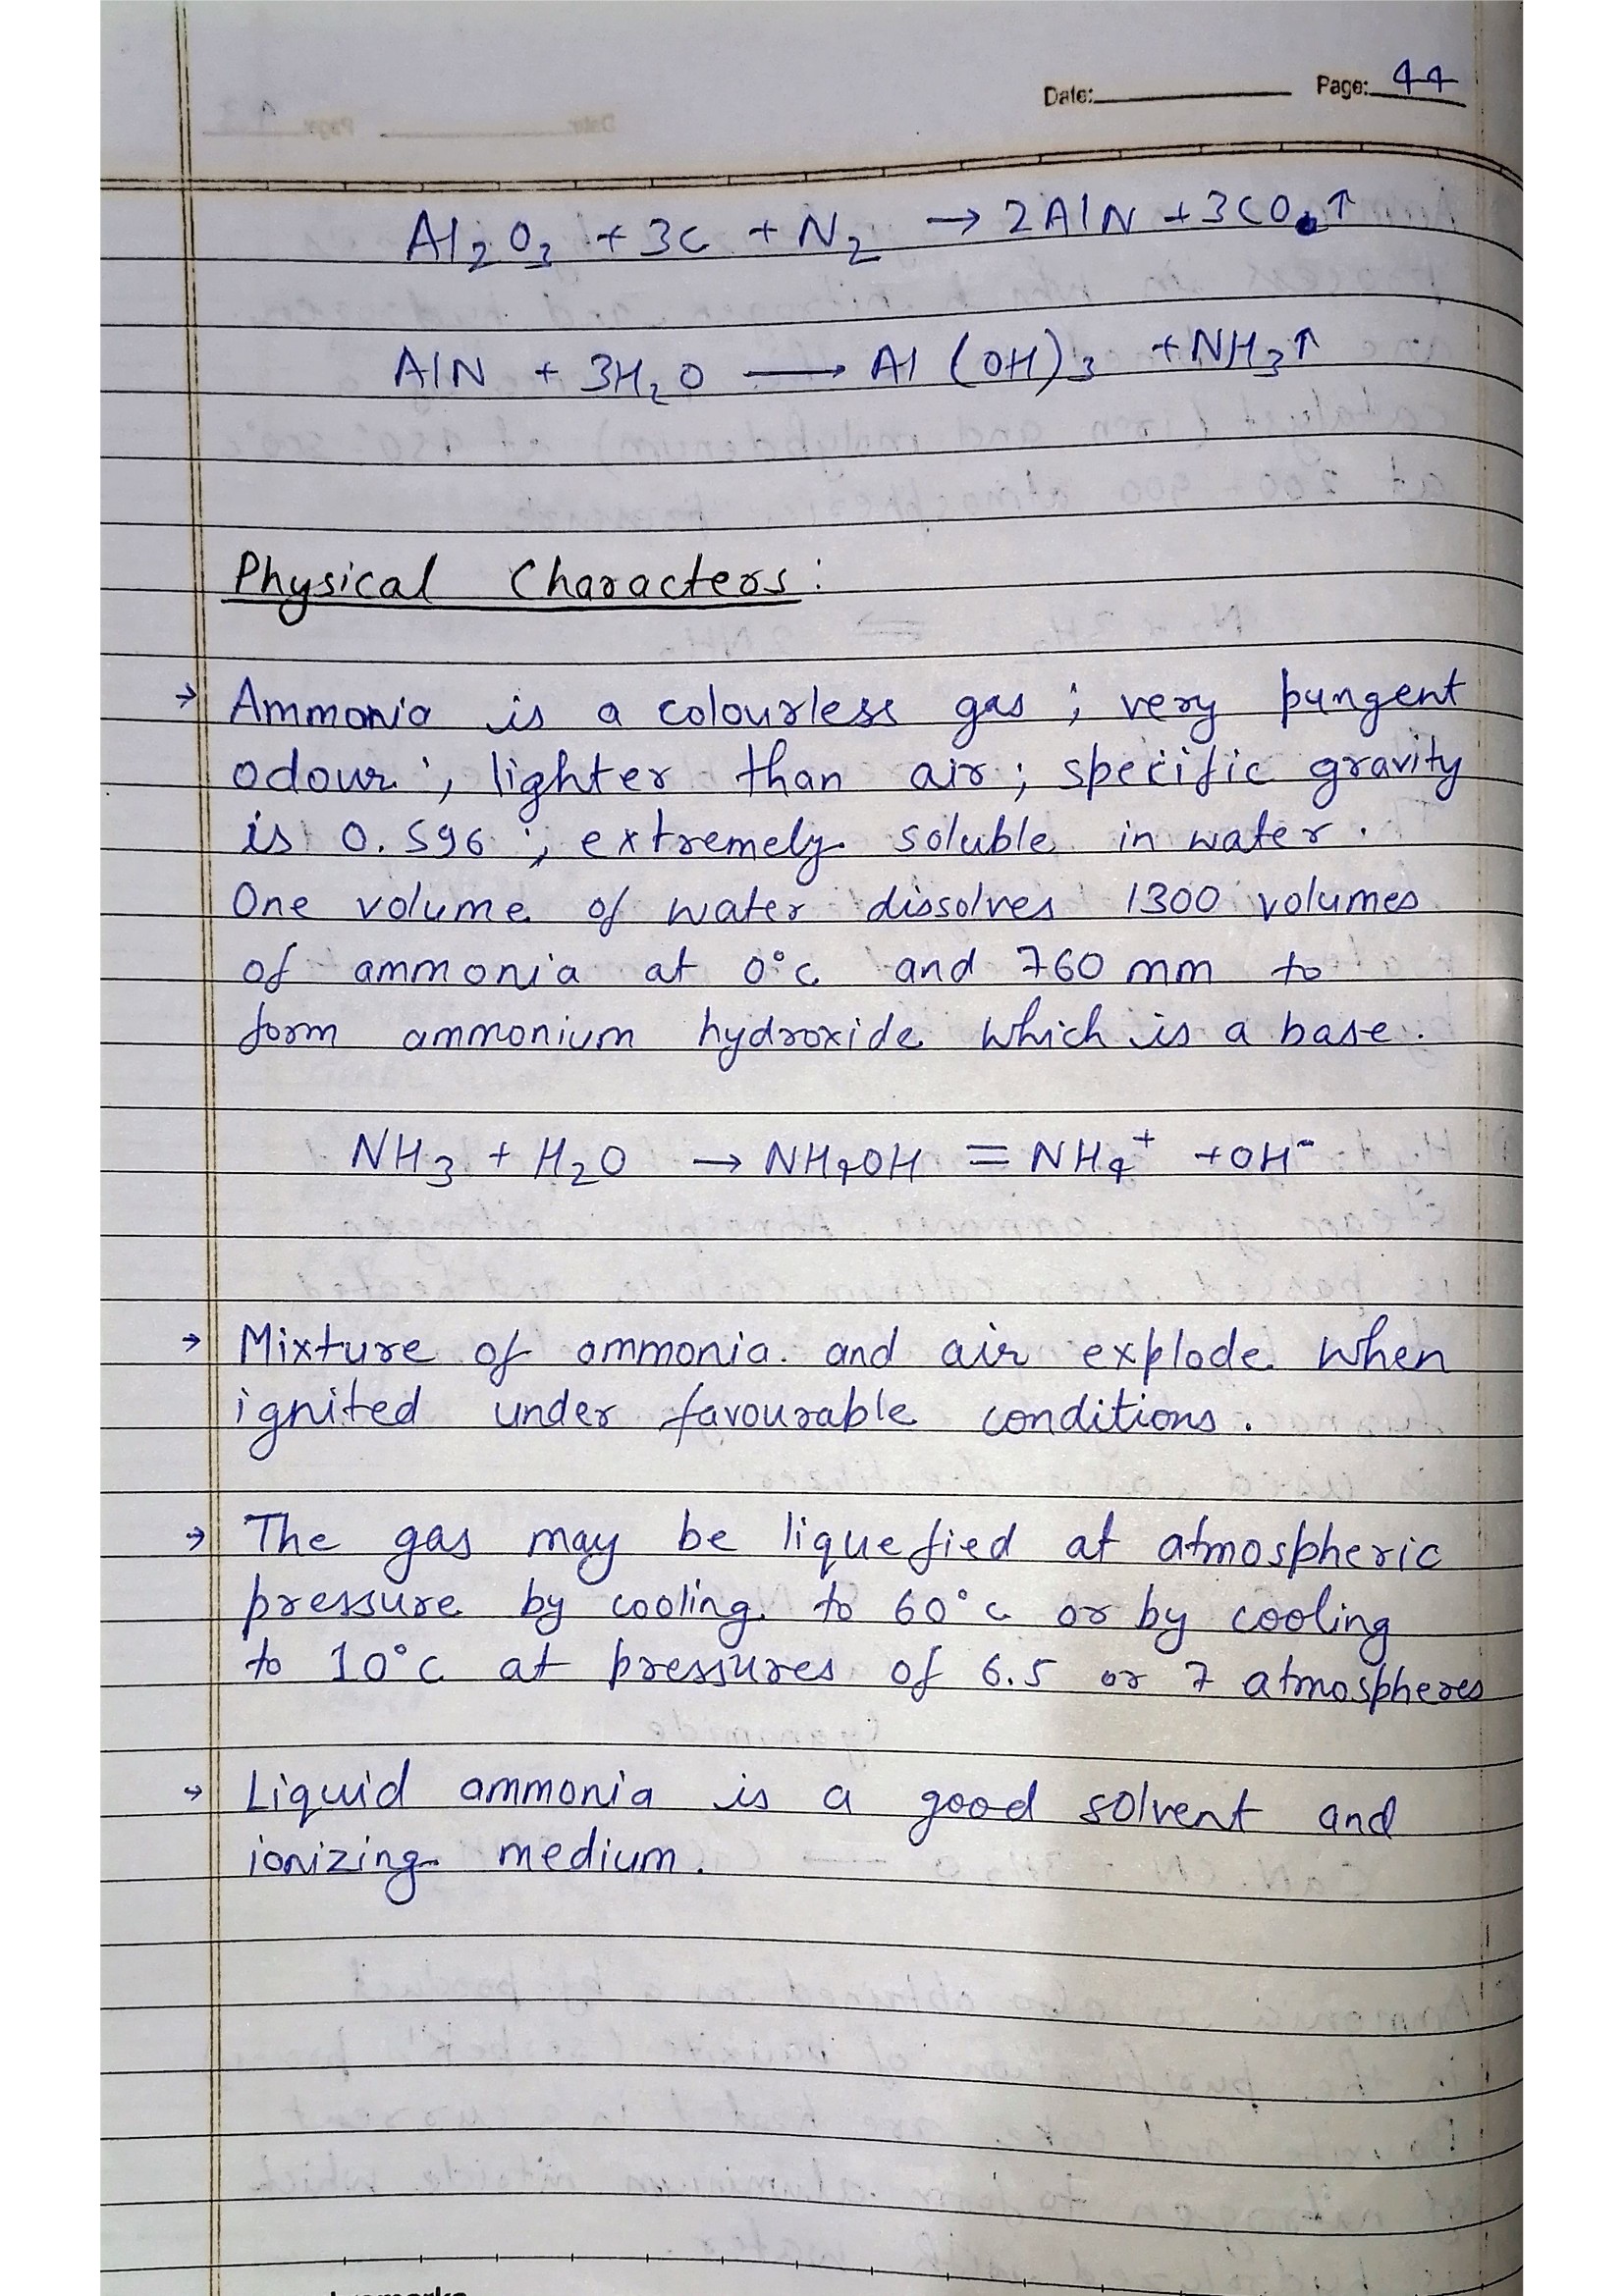 Date: Page: 44
Al2O3 + 3C + N2 → 2AlN + 3CO↑
AlN + 3H2O → Al (OH)3 + NH3↑
Physical Characters:
→ Ammonia is a colourless gas ; very pungent
odour ; lighter than air ; specific gravity
is 0.596 ; extremely soluble in water .
One volume of water dissolves 1300 volumes
of ammonia at 0°C and 760 mm to
form ammonium hydroxide which is a base .
NH3 + H2O → NH4OH = NH4+ + OH-
→ Mixture of ammonia and air explode when
ignited under favourable conditions .
→ The gas may be liquefied at atmospheric
pressure by cooling to 60°C or by cooling
to 10°C at pressures of 6.5 or 7 atmospheres
→ Liquid ammonia is a good solvent and
ionizing medium .